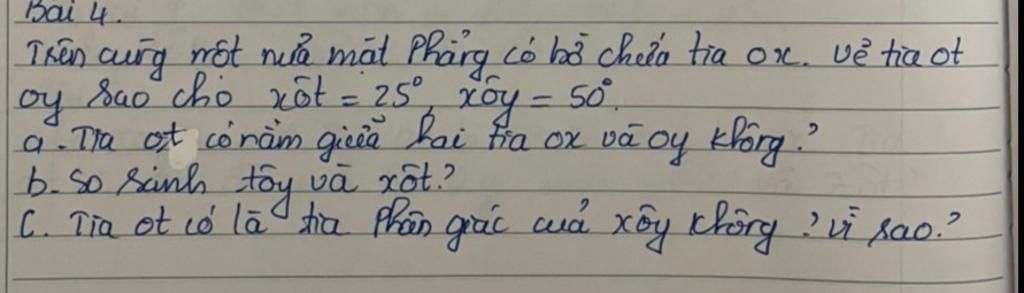 Bài 4.
Trên cùng một nửa mặt phẳng có bờ chứa tia ox. vẽ tia ot
oy sao cho xôt = 25°, xôy = 50°.
a. Tia ot có nằm giữa hai tia ox và oy không?
b. so sánh tôy và xôt?
C. Tia ot có là tia phân giác của xôy không? vì sao?